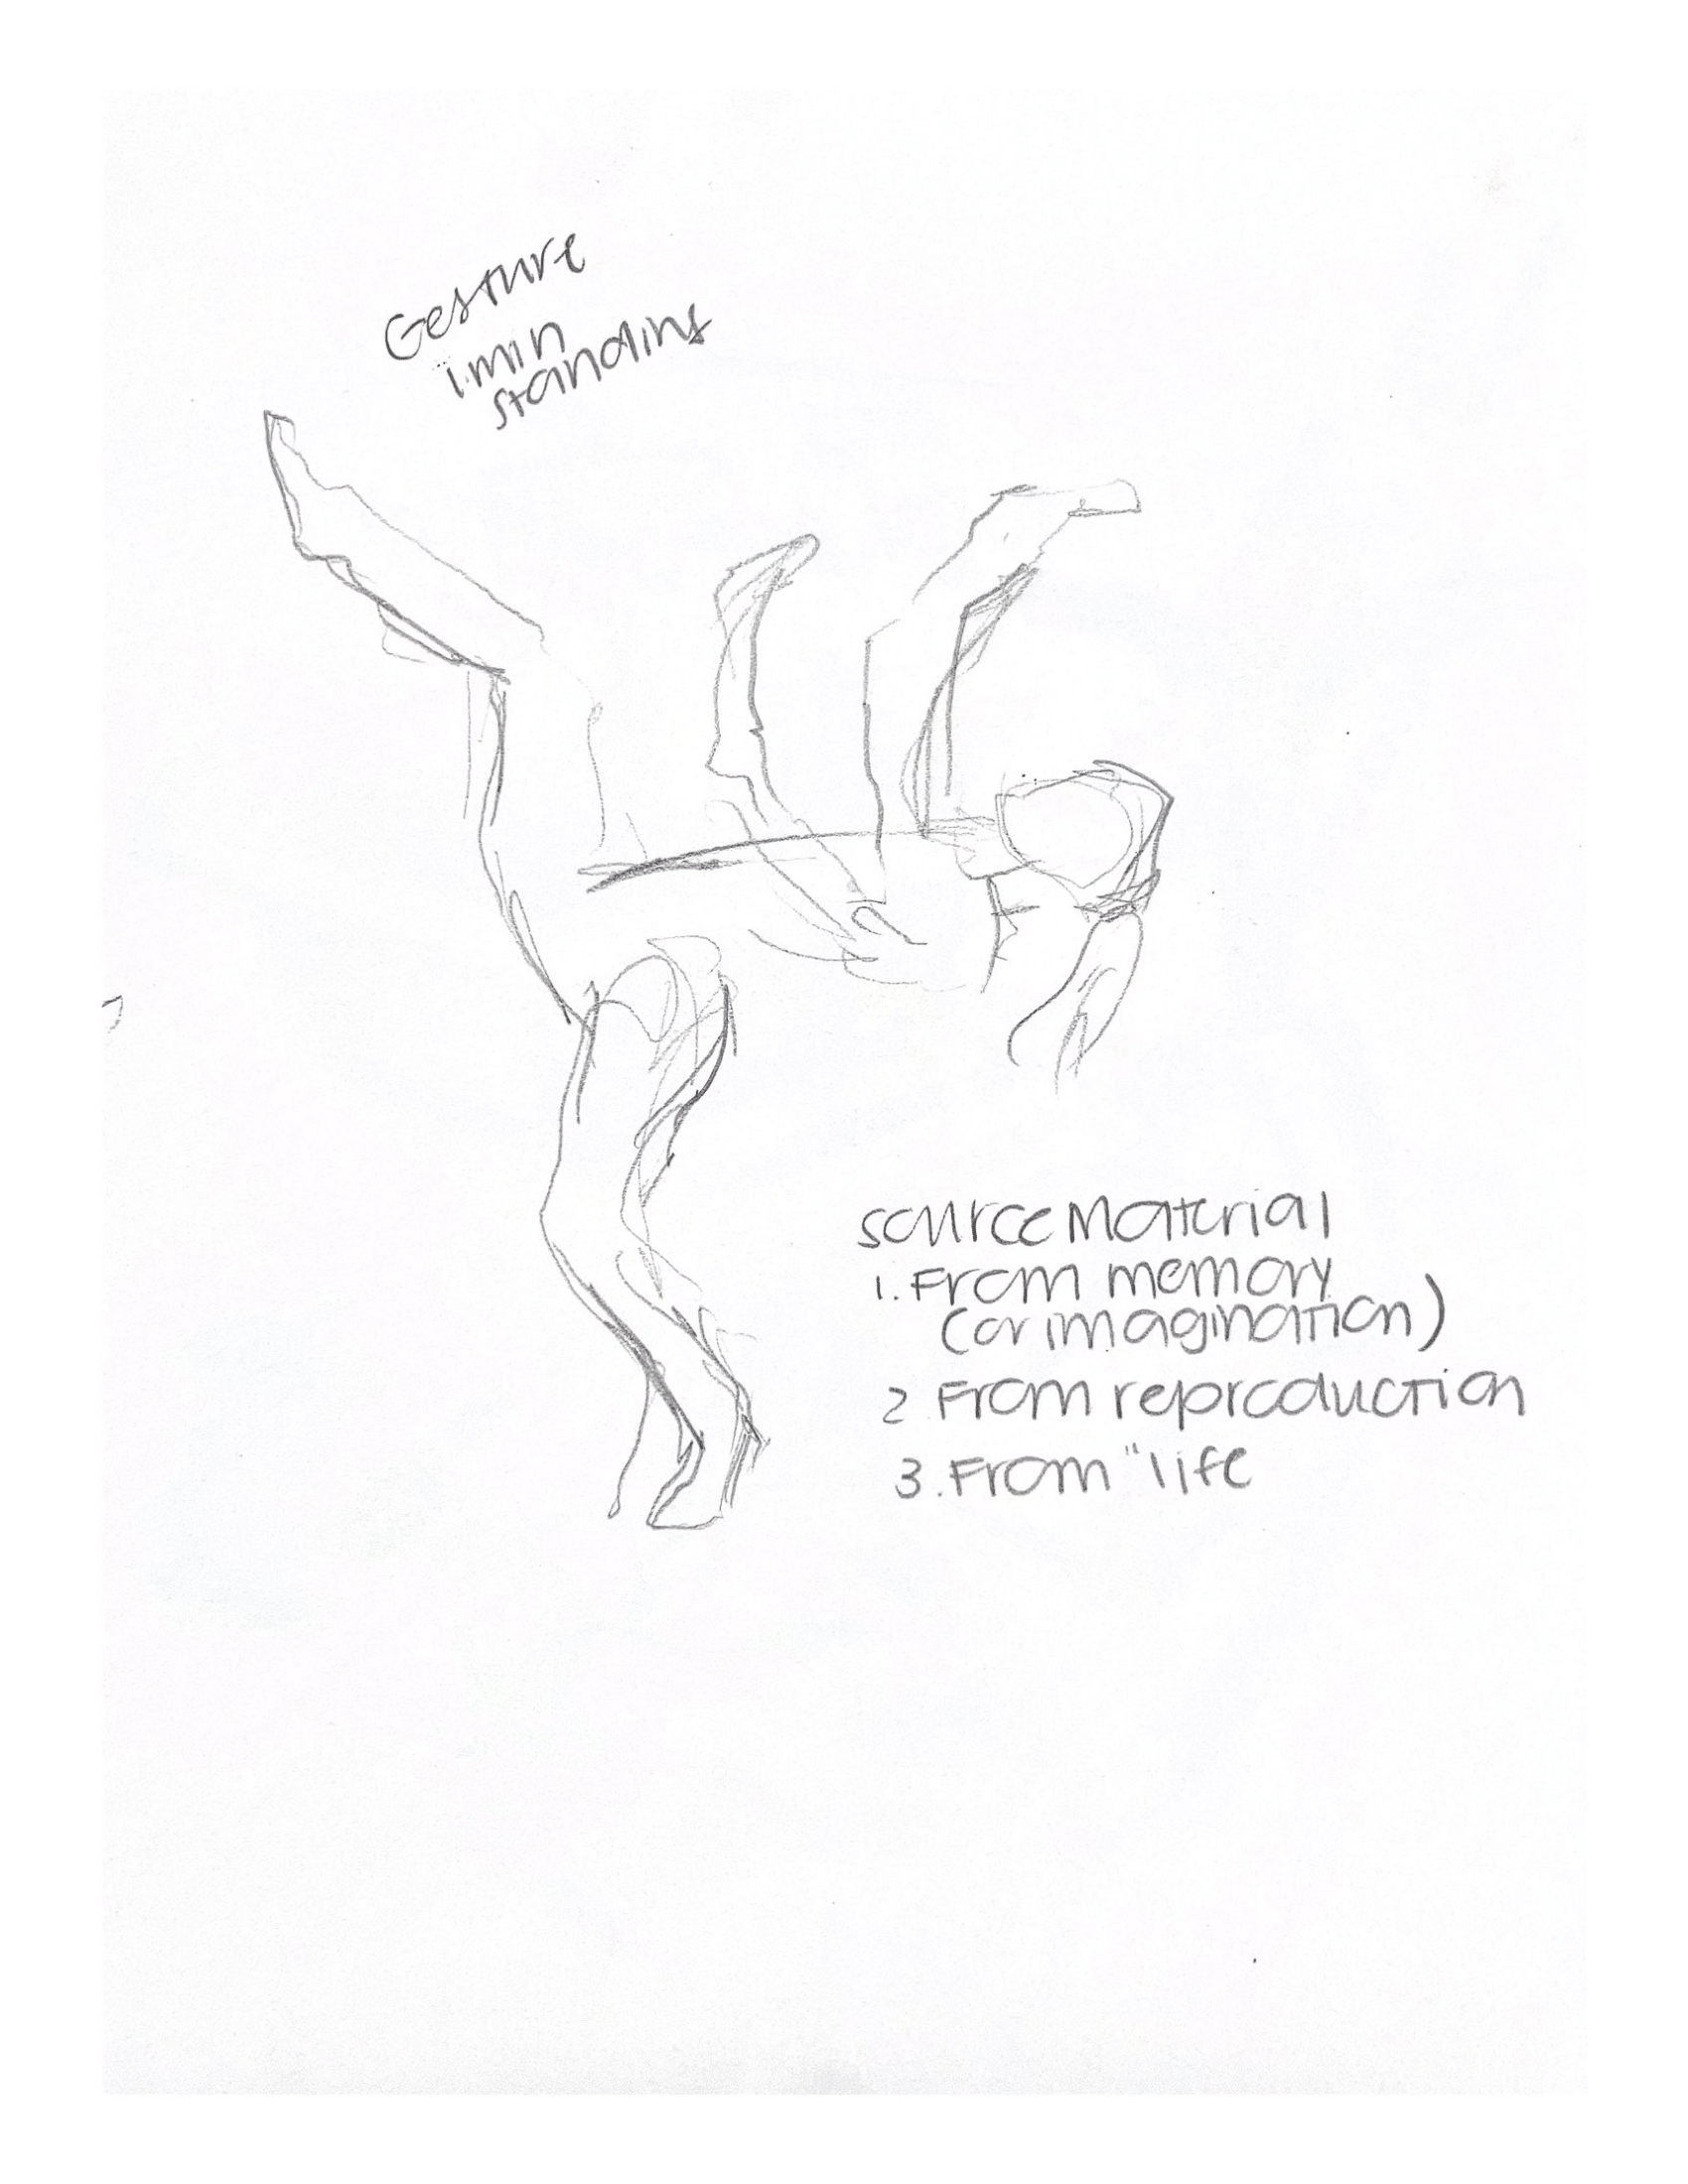 Gesture
1 min
standing
source Material
1. From memory
(or imagination)
2 From reproduction
3. From "life